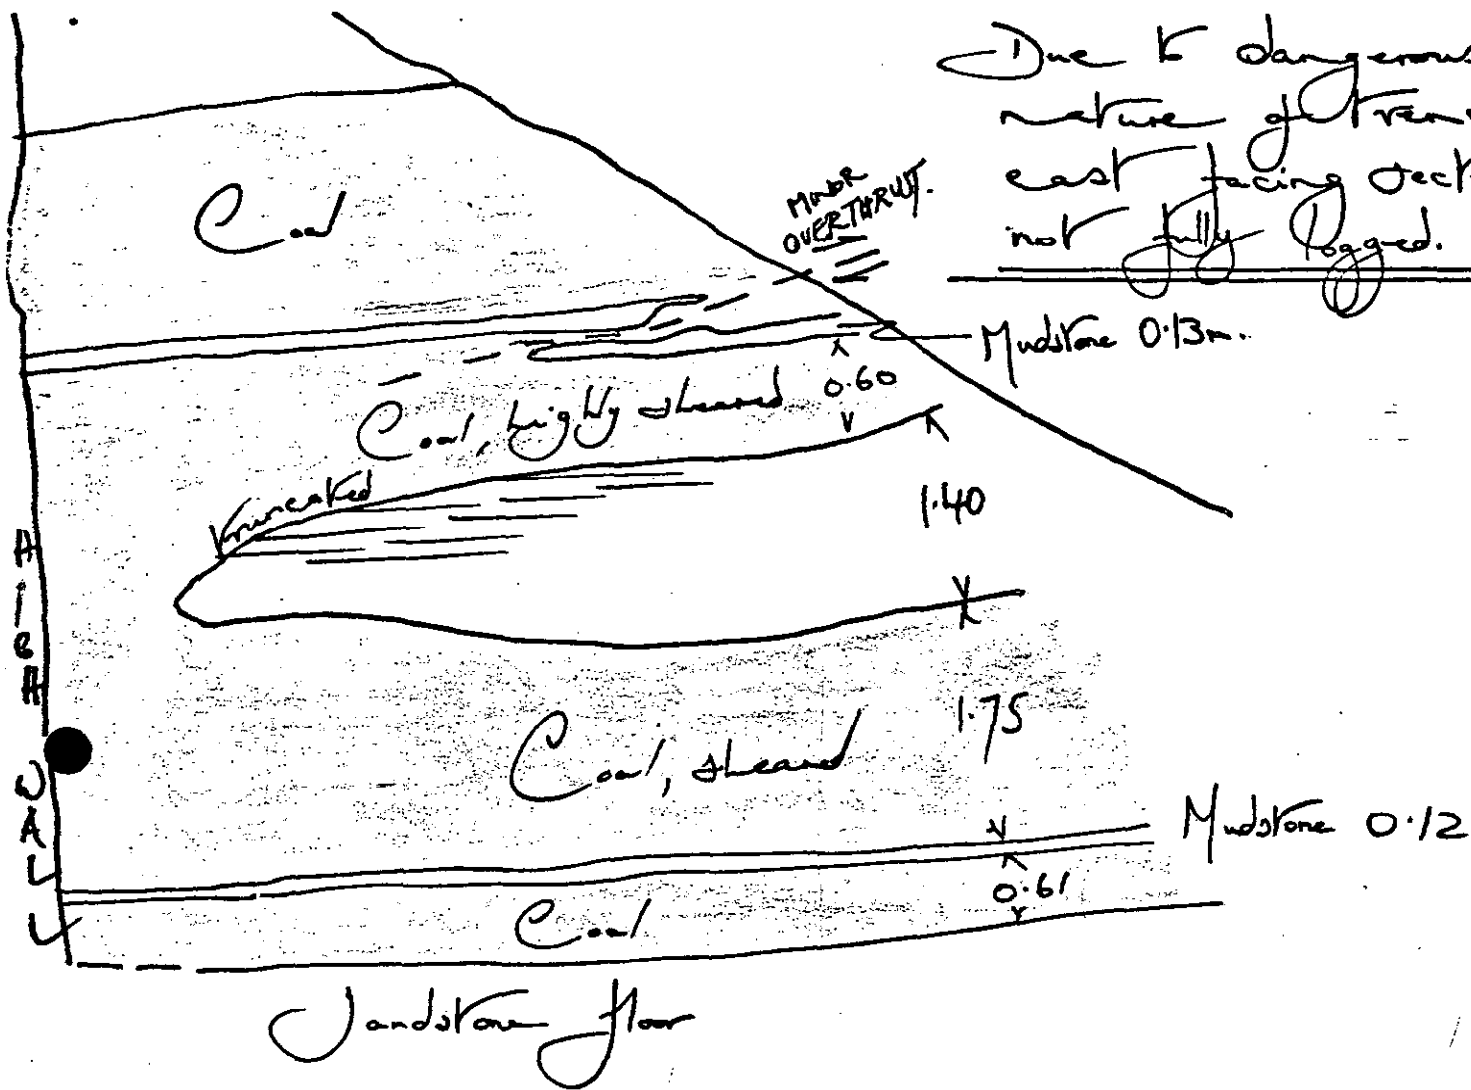 Due to dangerous
nature of
east facing sect
not fully logged.
Coal
MINOR
OVERTHRUST.
Mudstone 0.13m.
0.60
Coal, highly sheared
Truncated
1.40
HIGH WALL
1.75
Coal, sheared
Mudstone 0.12
0.61
Coal
Sandstone floor